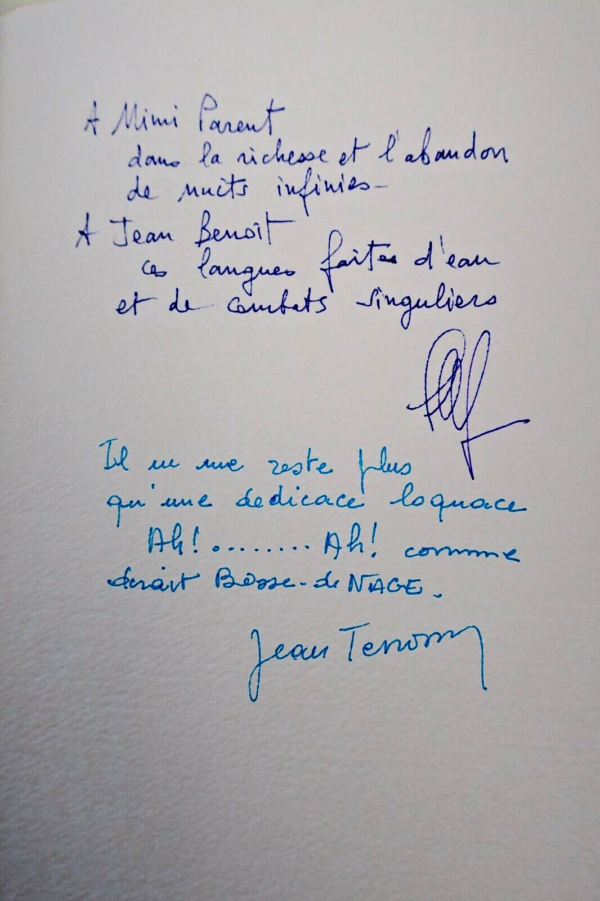 A Mimi Parent
dans la richesse et l'abandon
de nuits infinies –
A Jean Benoît
ces langues faites d'eau
et de combats singuliers
Il ne me reste plus
qu'une dedicace loquace
Ah!........Ah! comme
dirait Bosse-de NAGE.
Jean Terrossian